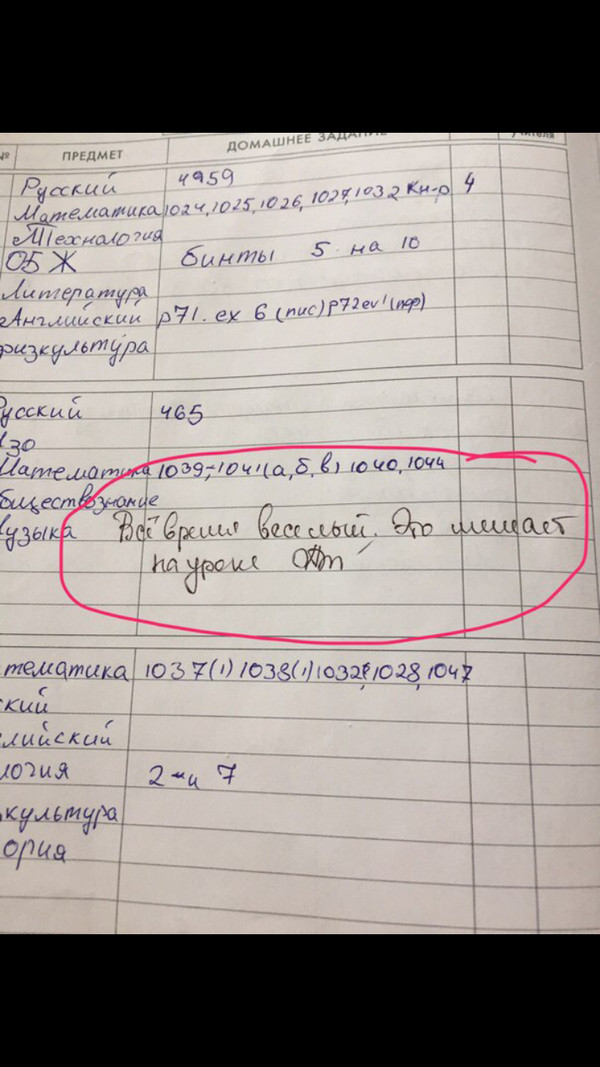 № ПРЕДМЕТ ДОМАШНЕЕ ЗАДАНИЕ учителя
Русский 4959
Математика 1024, 1025, 1026, 1027, 1032 Кн-р 4
Технология
ОБЖ бинты 5 на 10
Литература
Английский p71. ex 6 (пис) p72 ex 1 (пер)
физкультура
усский 465
Изо
Математика 1039, 1041 (а, б, в) 1040, 1044
бществознание
узыка Всё время веселый. Это мешает
на уроке
тематика 1037(1) 1038(1) 1032 1028, 1047
ский
лийский
логия 2 и 7
культура
ория